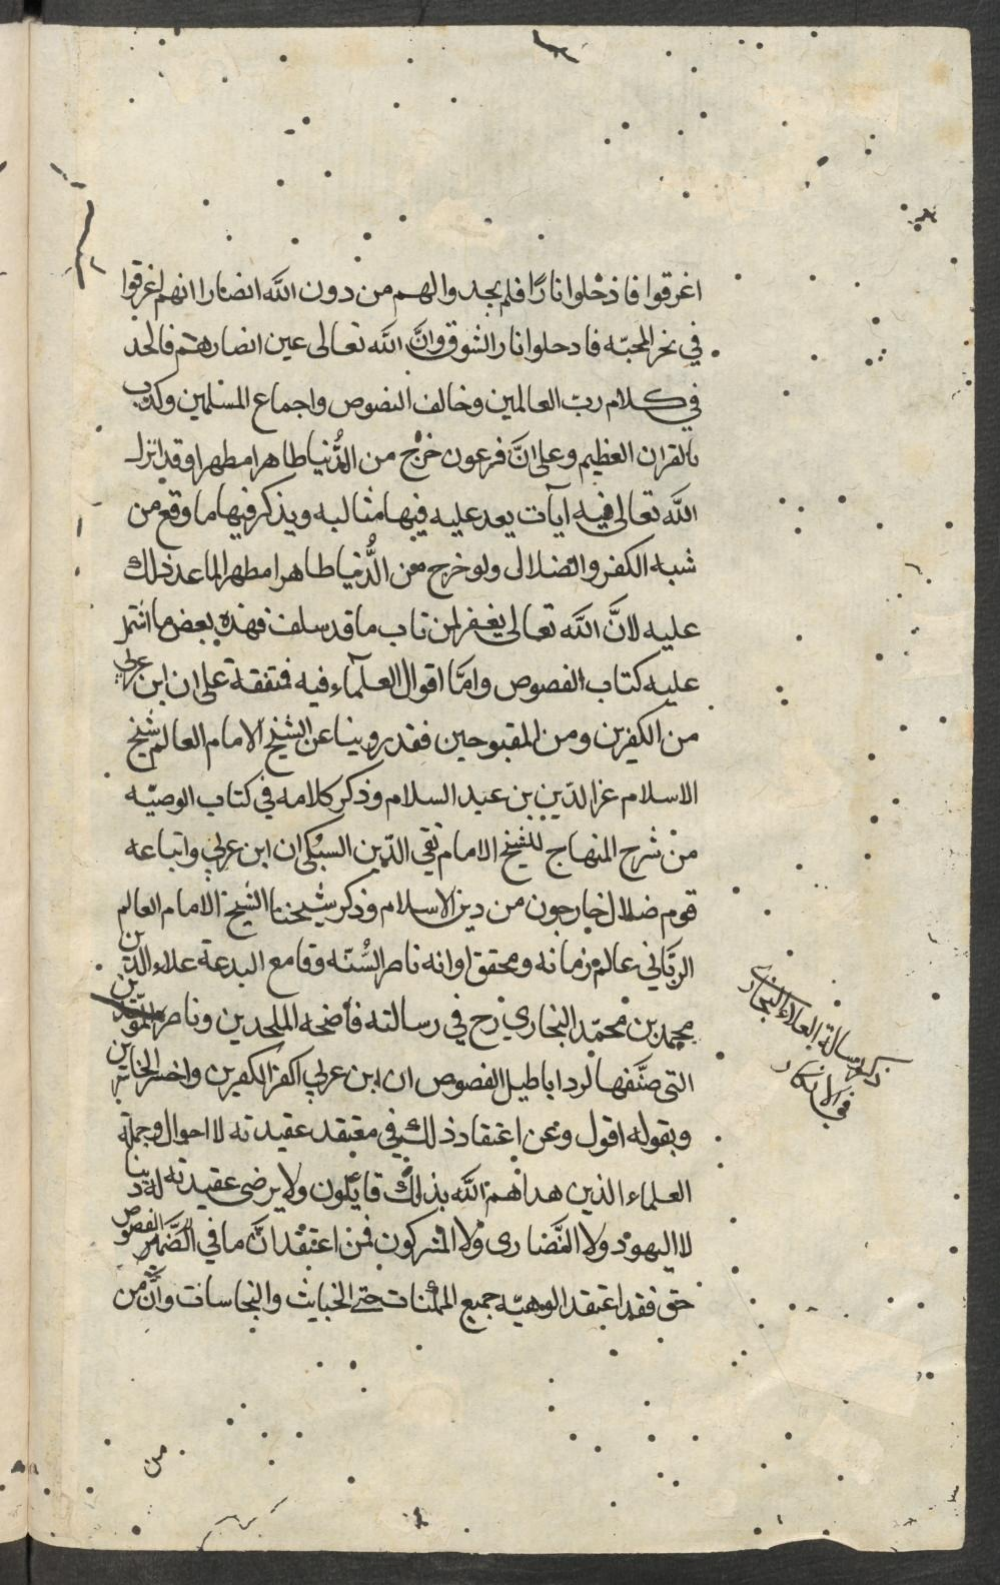 اغرقوا فادخلوا نارًا فلم يجدوا لهم من دون الله انصارا انهم اغرقوا
في بحر المحبّه فادخلوا نار الشوق وانَّ الله تعالى عين انصارهم فالحد
في كلام ربّ العالمين وخالف النصوص واجماع المسلمين وكذب
بالقران العظيم وعلى انَّ فرعون خرج من الدُّنيا طاهرا مطهرا وقد انزل
الله تعالى فيه ايآت يعد عليه فيها مثالبه ويذكر فيها ما وقع من
شبه الكفر والضلالى ولو خرج من الدُّنيا طاهرا مطهرا لما عد ذلك
عليه لانَّ الله تعالى يغفر لمن تاب ما قد سلف فهذه بعض ما اشتمل
عليه كتاب الفصوص وامَّا اقوال العلمآء فيه فمتفقة على ان ابن عربي
من الكفرين ومن المقبوحين فقد روينا عن الشيخ الامام العالم شيخ
الاسلام عز الدّين بن عبد السلام وذكر كلامه في كتاب الوصيّه
من شرح المنهاج للشيخ الامام تقي الدّين السبكى ان ابن عربي واتباعه
قوم ضلال خارجون من دين الاسلام وذكر شيخنا الشيخ الامام العالم
الربّاني عالم زمانه ومحقق اوانه ناصر السُّنّه وقامع البدعة علاء الدّين
محمد بن محمّد البخاري رح في رسالته فاضحه الملحدين وناصر الموحّدين
التى صنَّفها لرد اباطيل الفصوص ان ابن عربي اكفر الكفرين واخسر الخاسرين
وبقوله اقول ونحن اعتقاد ذلك في معتقد عقيدته لا احوال وجملة
العلماء الذين هداهم الله بذلك قايلون ولا يرضى عقيدته له دينا
لا اليهود ولا النَّصارى ولا المشركون فمن اعتقد انَّ ما في الفصوص
حق فقد اعتقد الوهيّه جميع الممكنات حتى الخبايث والنجاسات وانَّ من
ذكر رسالة العلاء البخاري
في الانكار
من